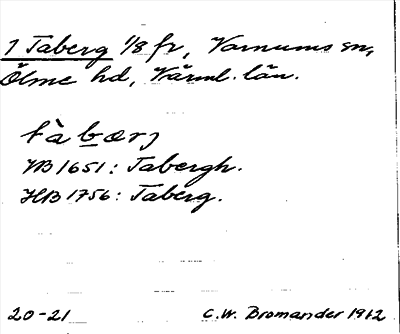 1 Taberg 1/8 fr, Varnums sn,
Ölme hd, Värml. län.
tàbærj
JB 1651: Tabergh.
HB 1756: Taberg.
20-21 C.W. Bromander 1912